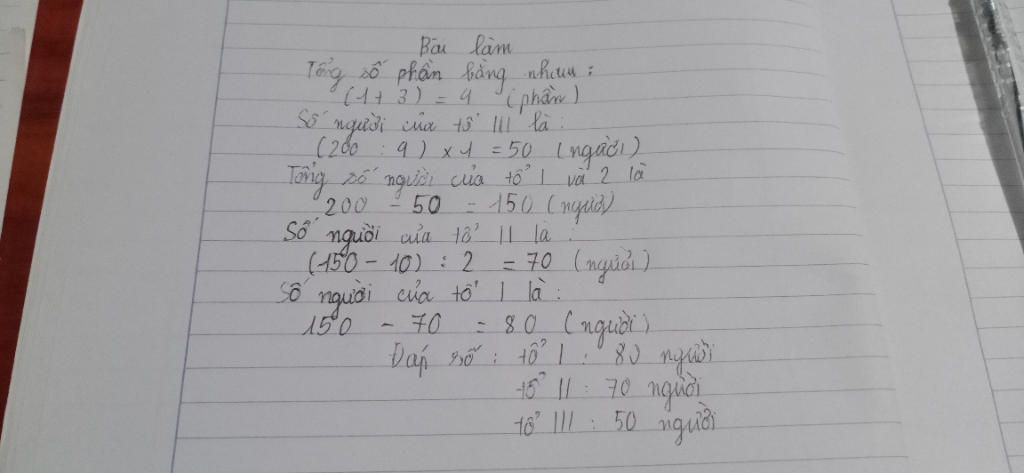 Bài làm
Tổng số phần bằng nhau :
(1 + 3) = 4 (phần)
Số người của tổ III là :
(200 : 4) x 1 = 50 (người)
Tổng số người của tổ 1 và 2 là
200 - 50 = 150 (người)
Số người của tổ II là :
(150 - 10) : 2 = 70 (người)
Số người của tổ I là :
150 - 70 = 80 (người)
Đáp số : tổ I : 80 người
tổ II : 70 người
tổ III : 50 người